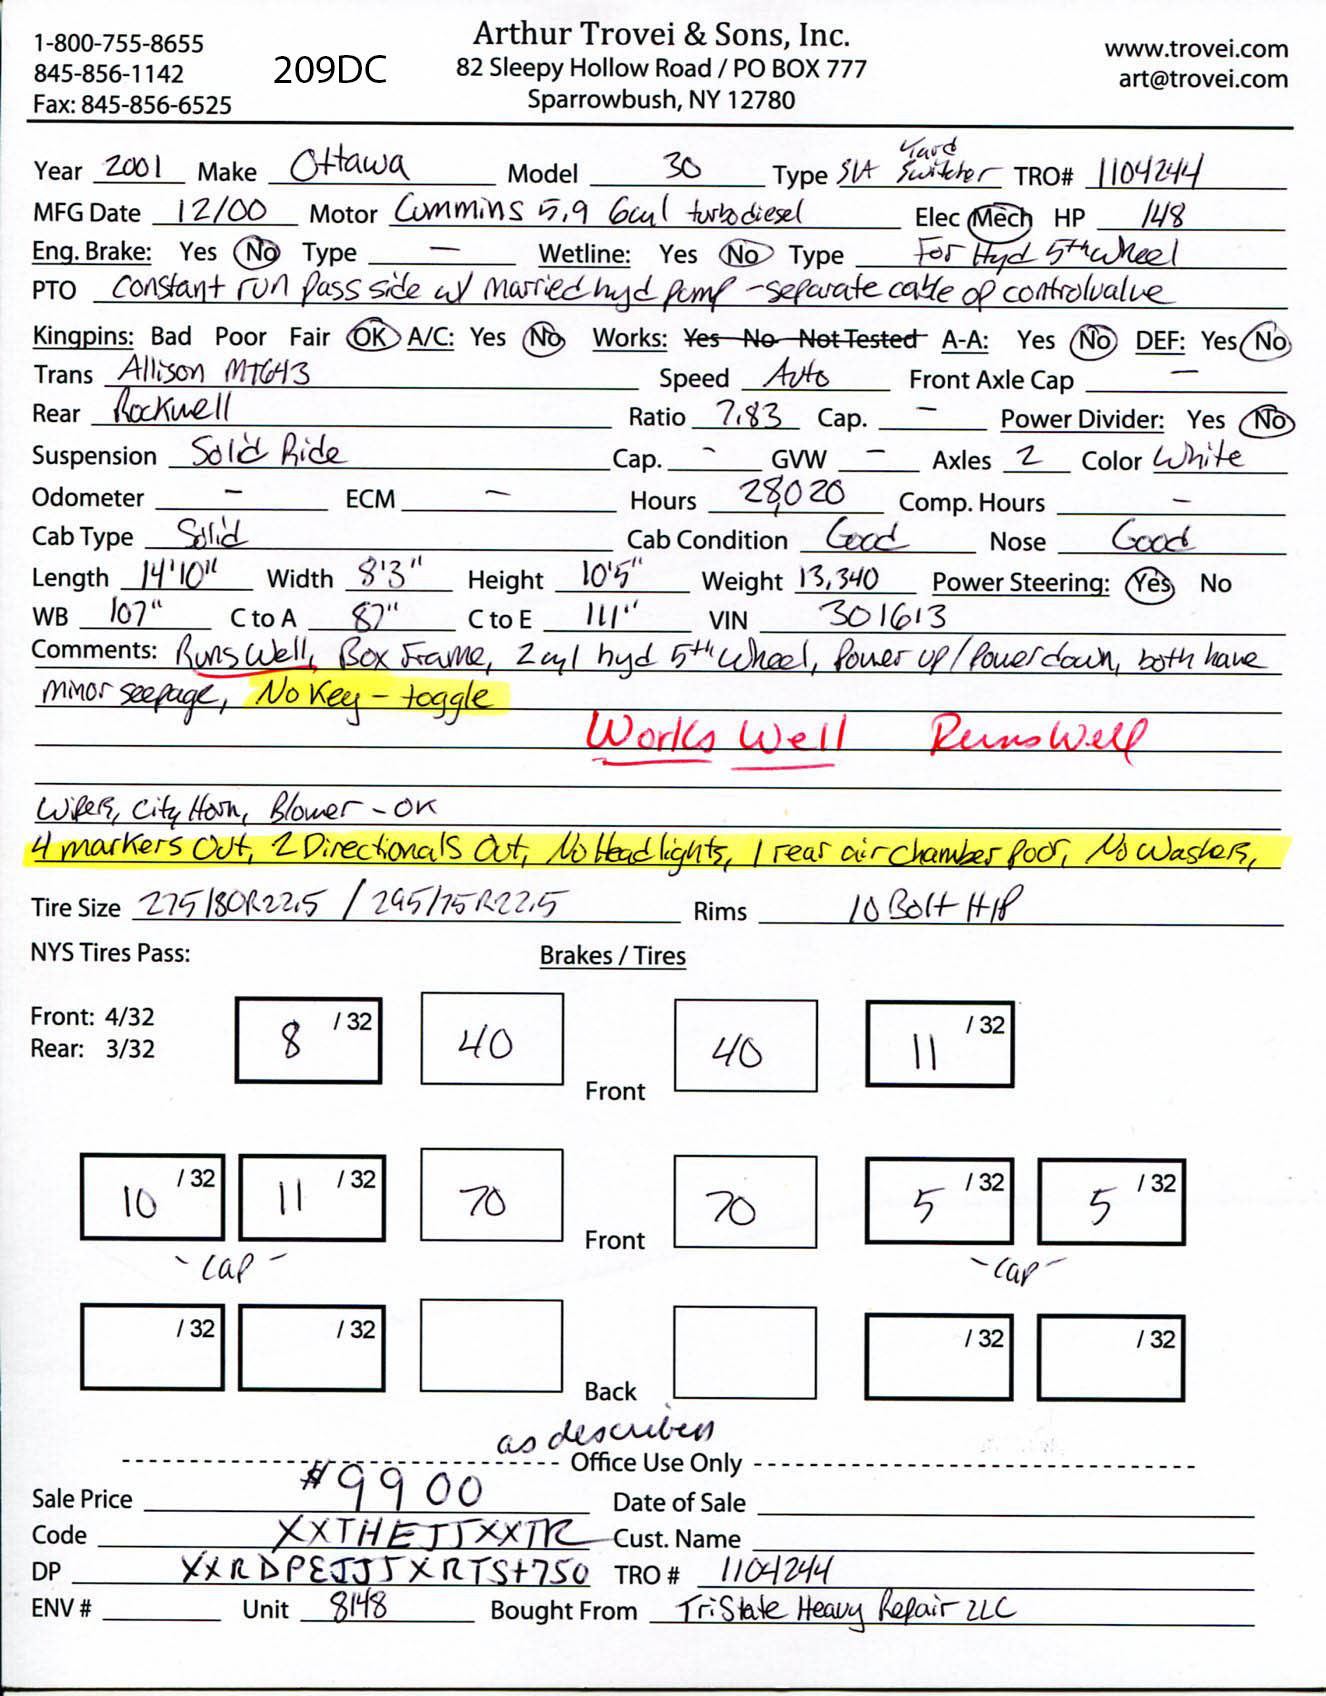 Arthur Trovei & Sons, Inc.
1-800-755-8655 82 Sleepy Hollow Road / PO BOX 777 www.trovei.com
845-856-1142 209DC Sparrowbush, NY 12780 art@trovei.com
Fax: 845-856-6525
Year 2001 Make Ottawa Model 30 Type S/A Yard Switcher TRO# 1104244
MFG Date 12/00 Motor Cummins 5.9 6cyl turbodiesel Elec Mech HP 148
Eng. Brake: Yes No Type — Wetline: Yes No Type For Hyd 5th Wheel
PTO constant run pass side w/ married hyd pump - separate cable op control valve
Kingpins: Bad Poor Fair OK A/C: Yes No Works: Yes No Not Tested A-A: Yes No DEF: Yes No
Trans Allison MT643 Speed Auto Front Axle Cap —
Rear Rockwell Ratio 7.83 Cap. — Power Divider: Yes No
Suspension Solid Ride Cap. - GVW — Axles 2 Color White
Odometer — ECM — Hours 28,020 Comp. Hours —
Cab Type Solid Cab Condition Good Nose Good
Length 14'10" Width 8'3" Height 10'5" Weight 13,340 Power Steering: Yes No
WB 107" C to A 87" C to E 111" VIN 301613
Comments: Runs Well, Box Frame, 2 cyl hyd 5th Wheel, Power up/Power down, both have
minor seepage, No Key - toggle
Works Well Runs Well
Wipers, City Horn, Blower - OK
4 markers Out, 2 Directionals Out, No Headlights, 1 rear air chamber poor, No Washers,
Tire Size 275/80R22.5 / 295/75R22.5 Rims 10 Bolt H/P
NYS Tires Pass: Brakes / Tires
Front: 4/32 8 /32 40 40 11 /32
Rear: 3/32
Front
10 /32 11 /32 70 70 5 /32 5 /32
Front
- cap - - cap -
/32 /32 /32 /32
Back
as described
Office Use Only
Sale Price $9900 Date of Sale
Code XXTHEJJXXTR Cust. Name
DP XXRDPEJJJXRTS+750 TRO # 1104244
ENV # Unit 8148 Bought From TriState Heavy Repair LLC